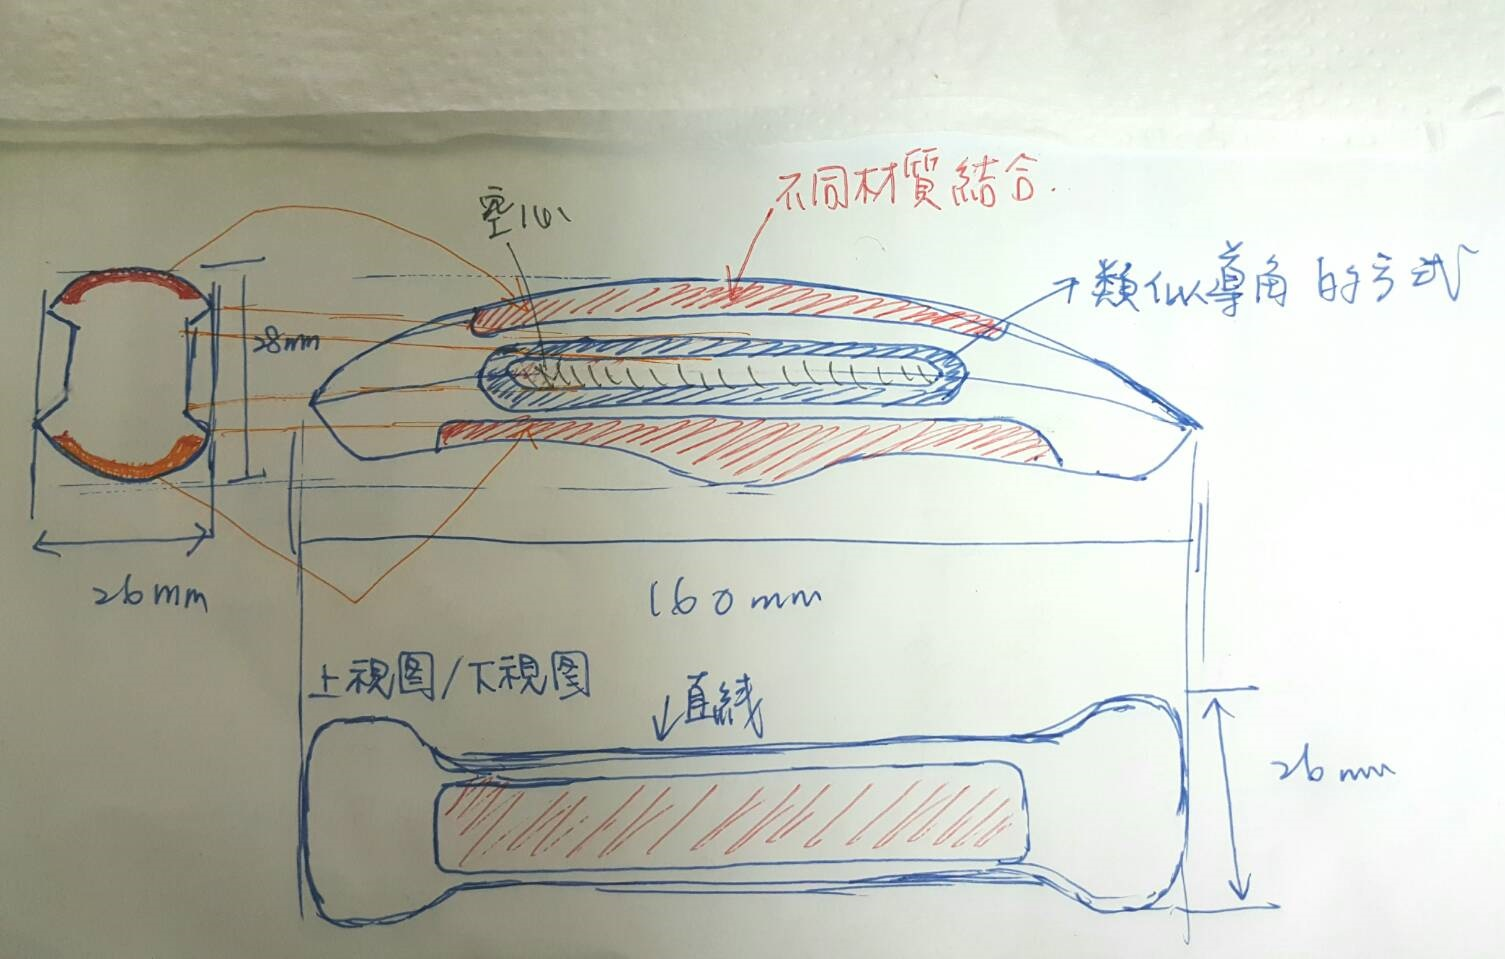 不同材質結合.
空心
類似導角的方式
28mm
26mm
160mm
上視图/下視图
直線
26mm